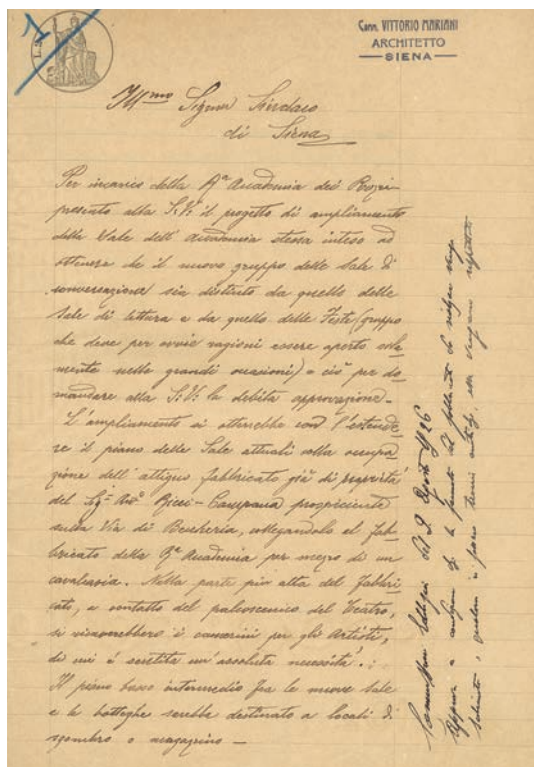 L. 2
Comm. VITTORIO MARIANI
ARCHITETTO
SIENA
Ill.mo Signor Sindaco
di Siena
Per incarico della Ra Accademia dei Rozzi
presento alla S.V. il progetto di ampliamento
delle Sale dell'Accademia stessa inteso ad
ottenere che il nuovo gruppo delle sale di
conversazione sia distinto da quello delle
sale di lettura e da quello delle Feste (gruppo
che deve per ovvie ragioni essere aperto sola
mente nelle grandi occasioni) e ciò per do
mandare alla S.V. la debita approvazione.
L'ampliamento si otterrebbe con l'estende
re il piano delle Sale attuali colla occupa
zione dell'attiguo fabbricato già di proprietà
del Sig. Bicci-Campana prospiciente
sulla Via di Beccheria, collegandolo al fab
bricato della Ra Accademia per mezzo di un
cavalcavia. Nella parte più alta del fabbri
cato, a contatto del palcoscenico del Teatro,
si ricaverebbero i camerini per gli Artisti,
di cui è sentita un'assoluta necessità.
Il piano basso intermedio fra le nuove sale
e le botteghe sarebbe destinato a locali di
sgombro o magazzino —
Commissione Edilizia del 9 Agosto 1926
Approva a condizione che le